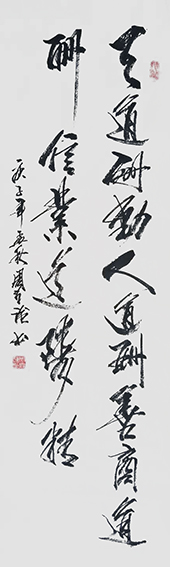 天道酬勤人道酬善商道
酬信业道酬精
庚子年孟秋